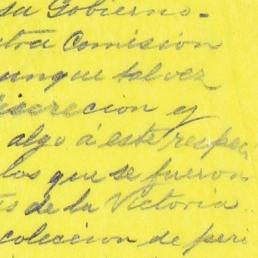 su Gobierno.-
tra Comisión
unque tal vez
iscrecion y
algo á este respec
los que se fueron
s de la Victoria
coleccion de peri